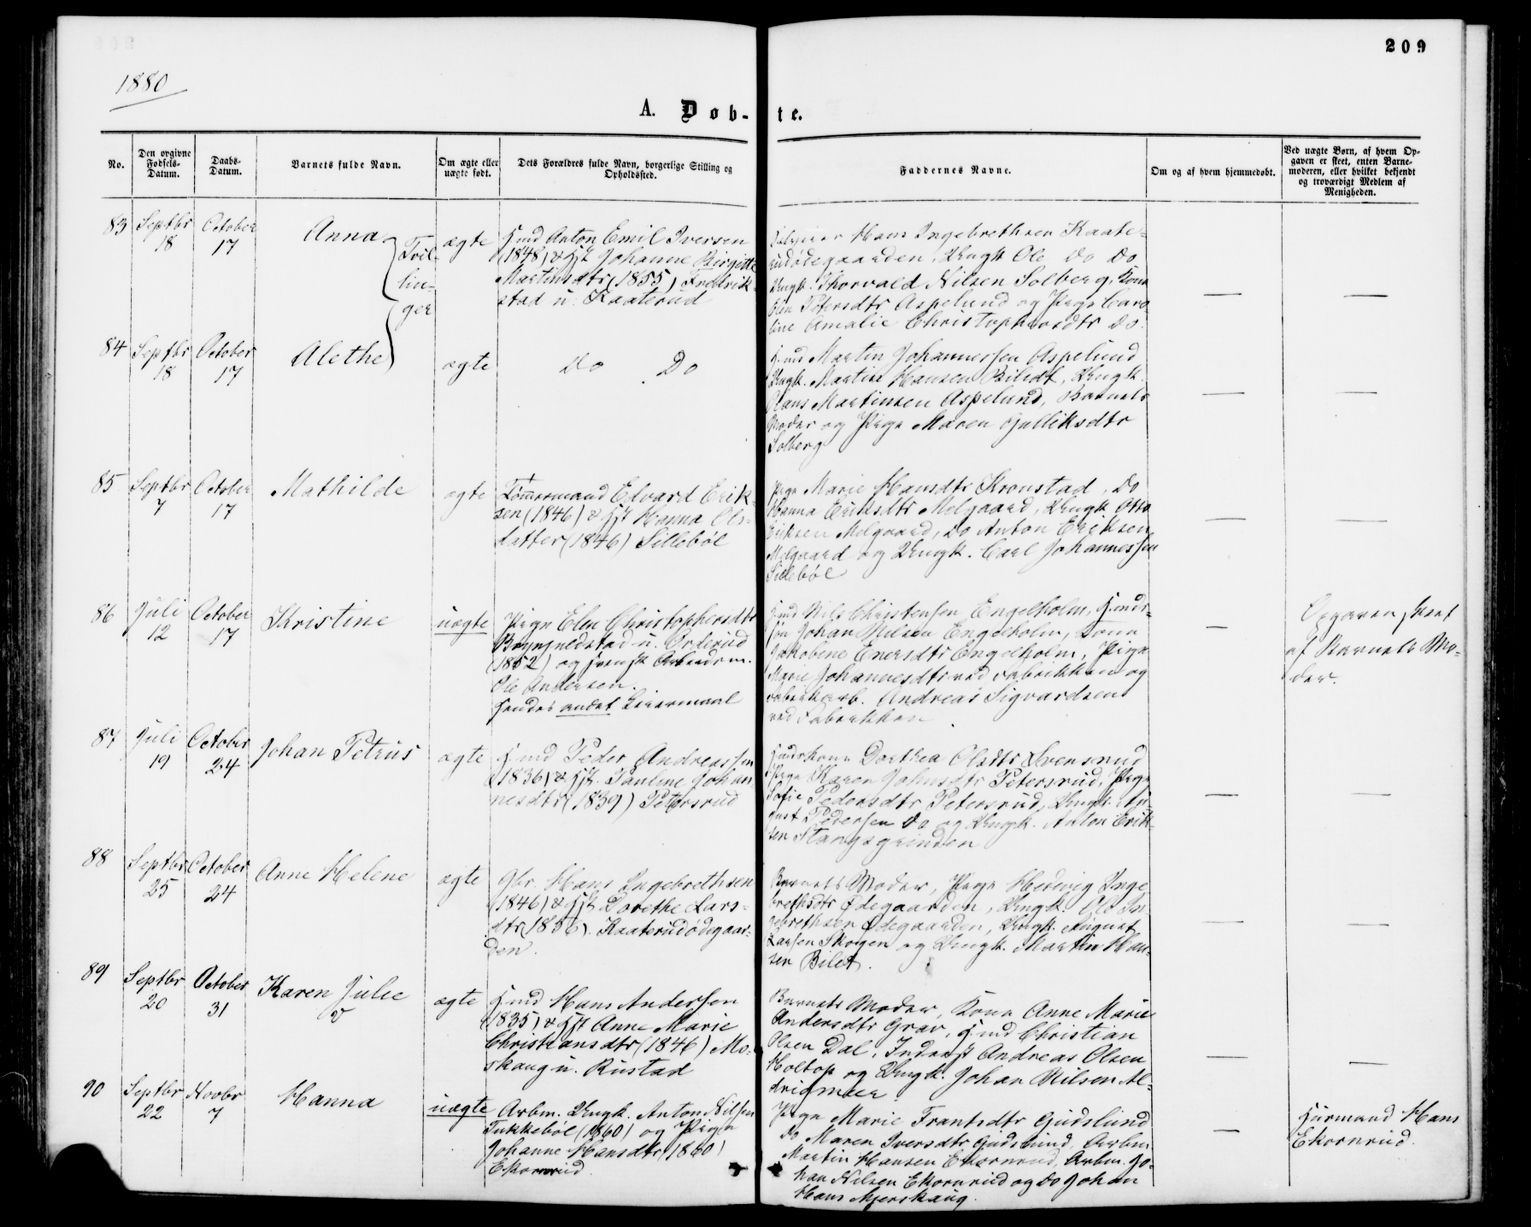 209
1880
A. Døb-
te.
No.
Den opgivne Fødsels-Datum.
Daabs-Datum.
Barnets fulde Navn.
Om ægte eller uægte født.
Dets Forældres fulde Navn, borgerlige Stilling og Opholdssted.
Faddernes Navne.
Om og af hvem hjemmedøbt.
Ved uægte Børn, af hvem Opgaven er skeet, enten Barnemoderen, eller hvilket bekjendt og troværdigt Medlem af Menigheden.
83 Septbr 18 October 17 Anna ægte
Tvil-
lin-
ger
Hmd Anton Emil Iversen
(1848) & Hst Johanne Birgitte
Martinsdtr (1855) Fredrik-
stad u. Kaaterud
Hans Ingebrethsen Kaate-
rudødegaarden, Ungk Ole Do Do
Ungk. Thorvald Nilsen Solberg, Kone
Olea Petersdtr Aspelund og Pige Caro
line Amalie Christophersdtr Do.
— —
84 Septbr 18 October 17 Alethe ægte
Do Do
Hmd Martin Johannessen Aspelund
Ungk. Martin Hansen Bilidt, Ungk.
Hans Martinsen Aspelund, Barnets
Moder og Pige Maren Gulliksdtr
Solberg
— —
85 Septbr 7 October 17 Mathilde ægte
Tømmermand Edvard Erik-
sen (1846) & Hst Hanna Ols-
datter (1846) Sillebøl
Pige Marie Hansdtr Kronstad, Do
Hanna Eriksdtr Melgaard, Ungk Otto
Eriksen Melgaard, Do Anton Eriksen
Melgaard og Ungk. Carl Johannessen
Sillebøl
— —
86 Juli 12 October 17 Kristine uægte
Pige Elen Christophersdtr
u. Orderud
(1852) og svensk Arbeidsm.
Ole Andersen.
Hendes andet Leiermaal
Hmd Nils Christensen Engelholm, Hmds-
søn Johan Nilsen Engelholm, Kone
Jakobine Enersdtr Engelholm, Pige
Marie Johannesdtr ved Fabrikken og
Fabrikarb. Andreas Sigvardsen
ved Fabrikken.
—
Opgaven skeet
af Barnets Mo-
der.
87 Juli 19 October 24 Johan Petrus ægte
Hmd Peder Andreassen
(1836) & Hst. Pauline Johan
nesdtr (1839) Petersrud
Dorthea Olsdtr Svensrud
Pige Karen Johnsdtr Petersrud, Pige
Sofie Pedersdtr Petersrud, Ungk. Au-
gust Pedersen Do og Ungk. Anton Erik-
sen Stangsgrinden
— —
88 Septbr 25 October 24 Anne Helene ægte
Gbr. Hans Ingebrethsen
(1846) & Hst. Dorethe Lars-
dtr (1856). Kaaterudødegaar-
den.
Barnets Moder, Pige Hedvig Inge
brethsdtr Ødegaarden, Ungk. Ole In-
gebrethsen Ødegaarden, Ungk. August
Larsen Skogen og Ungk. Martin Han-
sen Bilet.
— —
89 Septbr 20 October 31 Karen Julie ægte
v
Hmd Hans Andersen
(1835) & Hst Anne Marie
Christiansdtr (1846) Mo-
skaug u. Rustad
Barnets Moder, Kone Anne Marie
Andersdtr Grav, Hmd Christian
Olsen Dal, Inderst Andreas Olsen
Holtop og Ungk. Johan Nilsen Al-
— —
90 Septbr 22 Novbr 7 Hanna uægte
Arbm. Ungk. Anton Nilsen
Tukkebøl (1860) og Pige
Johanne Hansdtr (1860)
Ekornrud
Pige Marie Frantsdtr Gudslund
Do Maren Iversdtr Gudslund, Arbm
Martin Hansen Ekornrud, Arbm. Jo-
han Nilsen Ekornrud og Do Johan
Hans Mjerskaug.
—
Huusmand Hans
Ekornrud.